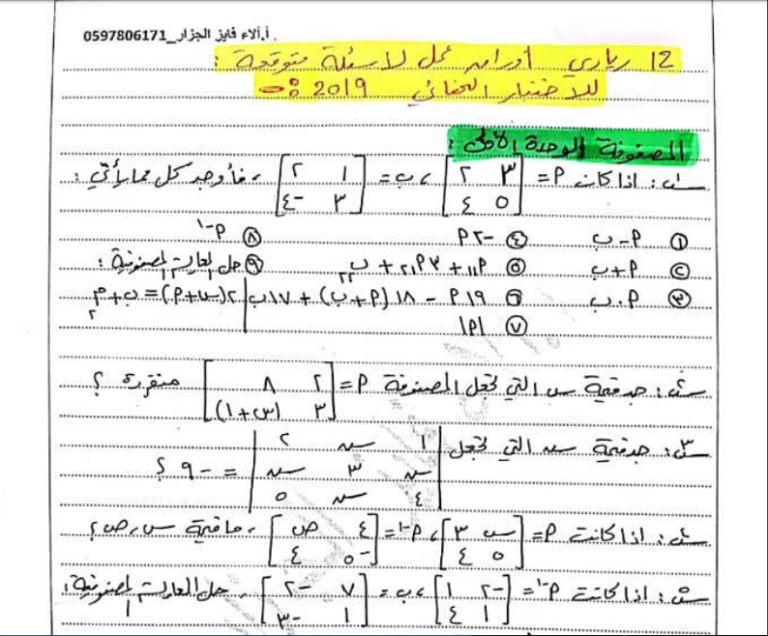 أ.آلاء فايز الجزار_0597806171
12 ريادي أوراق عمل لأسئلة متوقعة :
للاختبار النهائي 2019 :
المصفوفة الوحدة الأولى :
س١: اذا كان P = [٣ ٢ ، ٥ ٤] ، ب = [١ ٢ ، ٣ -٤] ، فأوجد كل مما يأتي :
① P - ب ④ -٢P ⑧ P⁻¹
② P + ب ⑤ P₁١ + ٣P٢١ + ب٢٢ ⑨ حل المعادلة المصفوفية :
③ P . ب ⑥ ١٩P - ١٨(P + ب) + ١٧ب ٢(س + P) = ب + م٢
⑦ |P|
س٢: جد قيمة س التي تجعل المصفوفة P = [٢ ٨ ، ٣ (س+١)] منفردة ؟
س٣: جد قيمة س التي تجعل |١ س ٢ ، س ٣ س ، ٤ س ٥| = -٩ ؟
س٤: اذا كانت P = [س ٣ ، ٥ ٤] ، P⁻¹ = [٤ ص ، -٥ ٤] ، ما قيمة س ، ص ؟
س٥: اذا كانت P⁻¹ = [-٢ ١ ، ١ ٤] ، ب = [٧ -٢ ، ١ -٣] ، حل المعادلة المصفوفية :